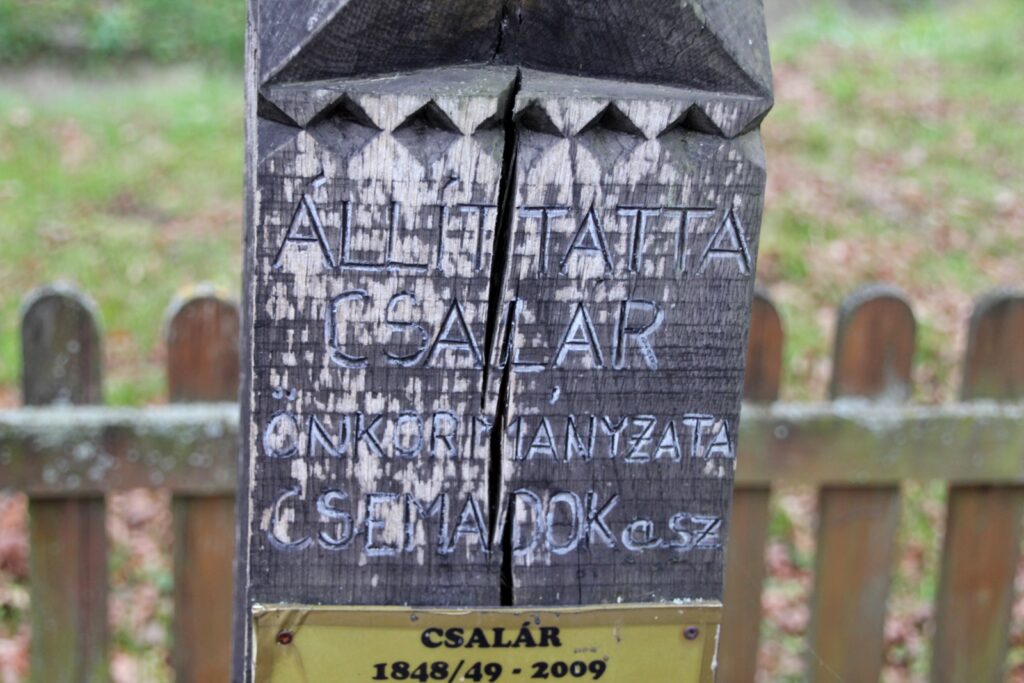 ÁLLÍTTATTA
CSALÁR
ÖNKORMÁNYZATA
CSEMADOK a sz
CSALÁR
1848/49 - 2009